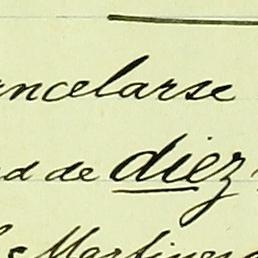 ncelarse
d de diez
Martinez